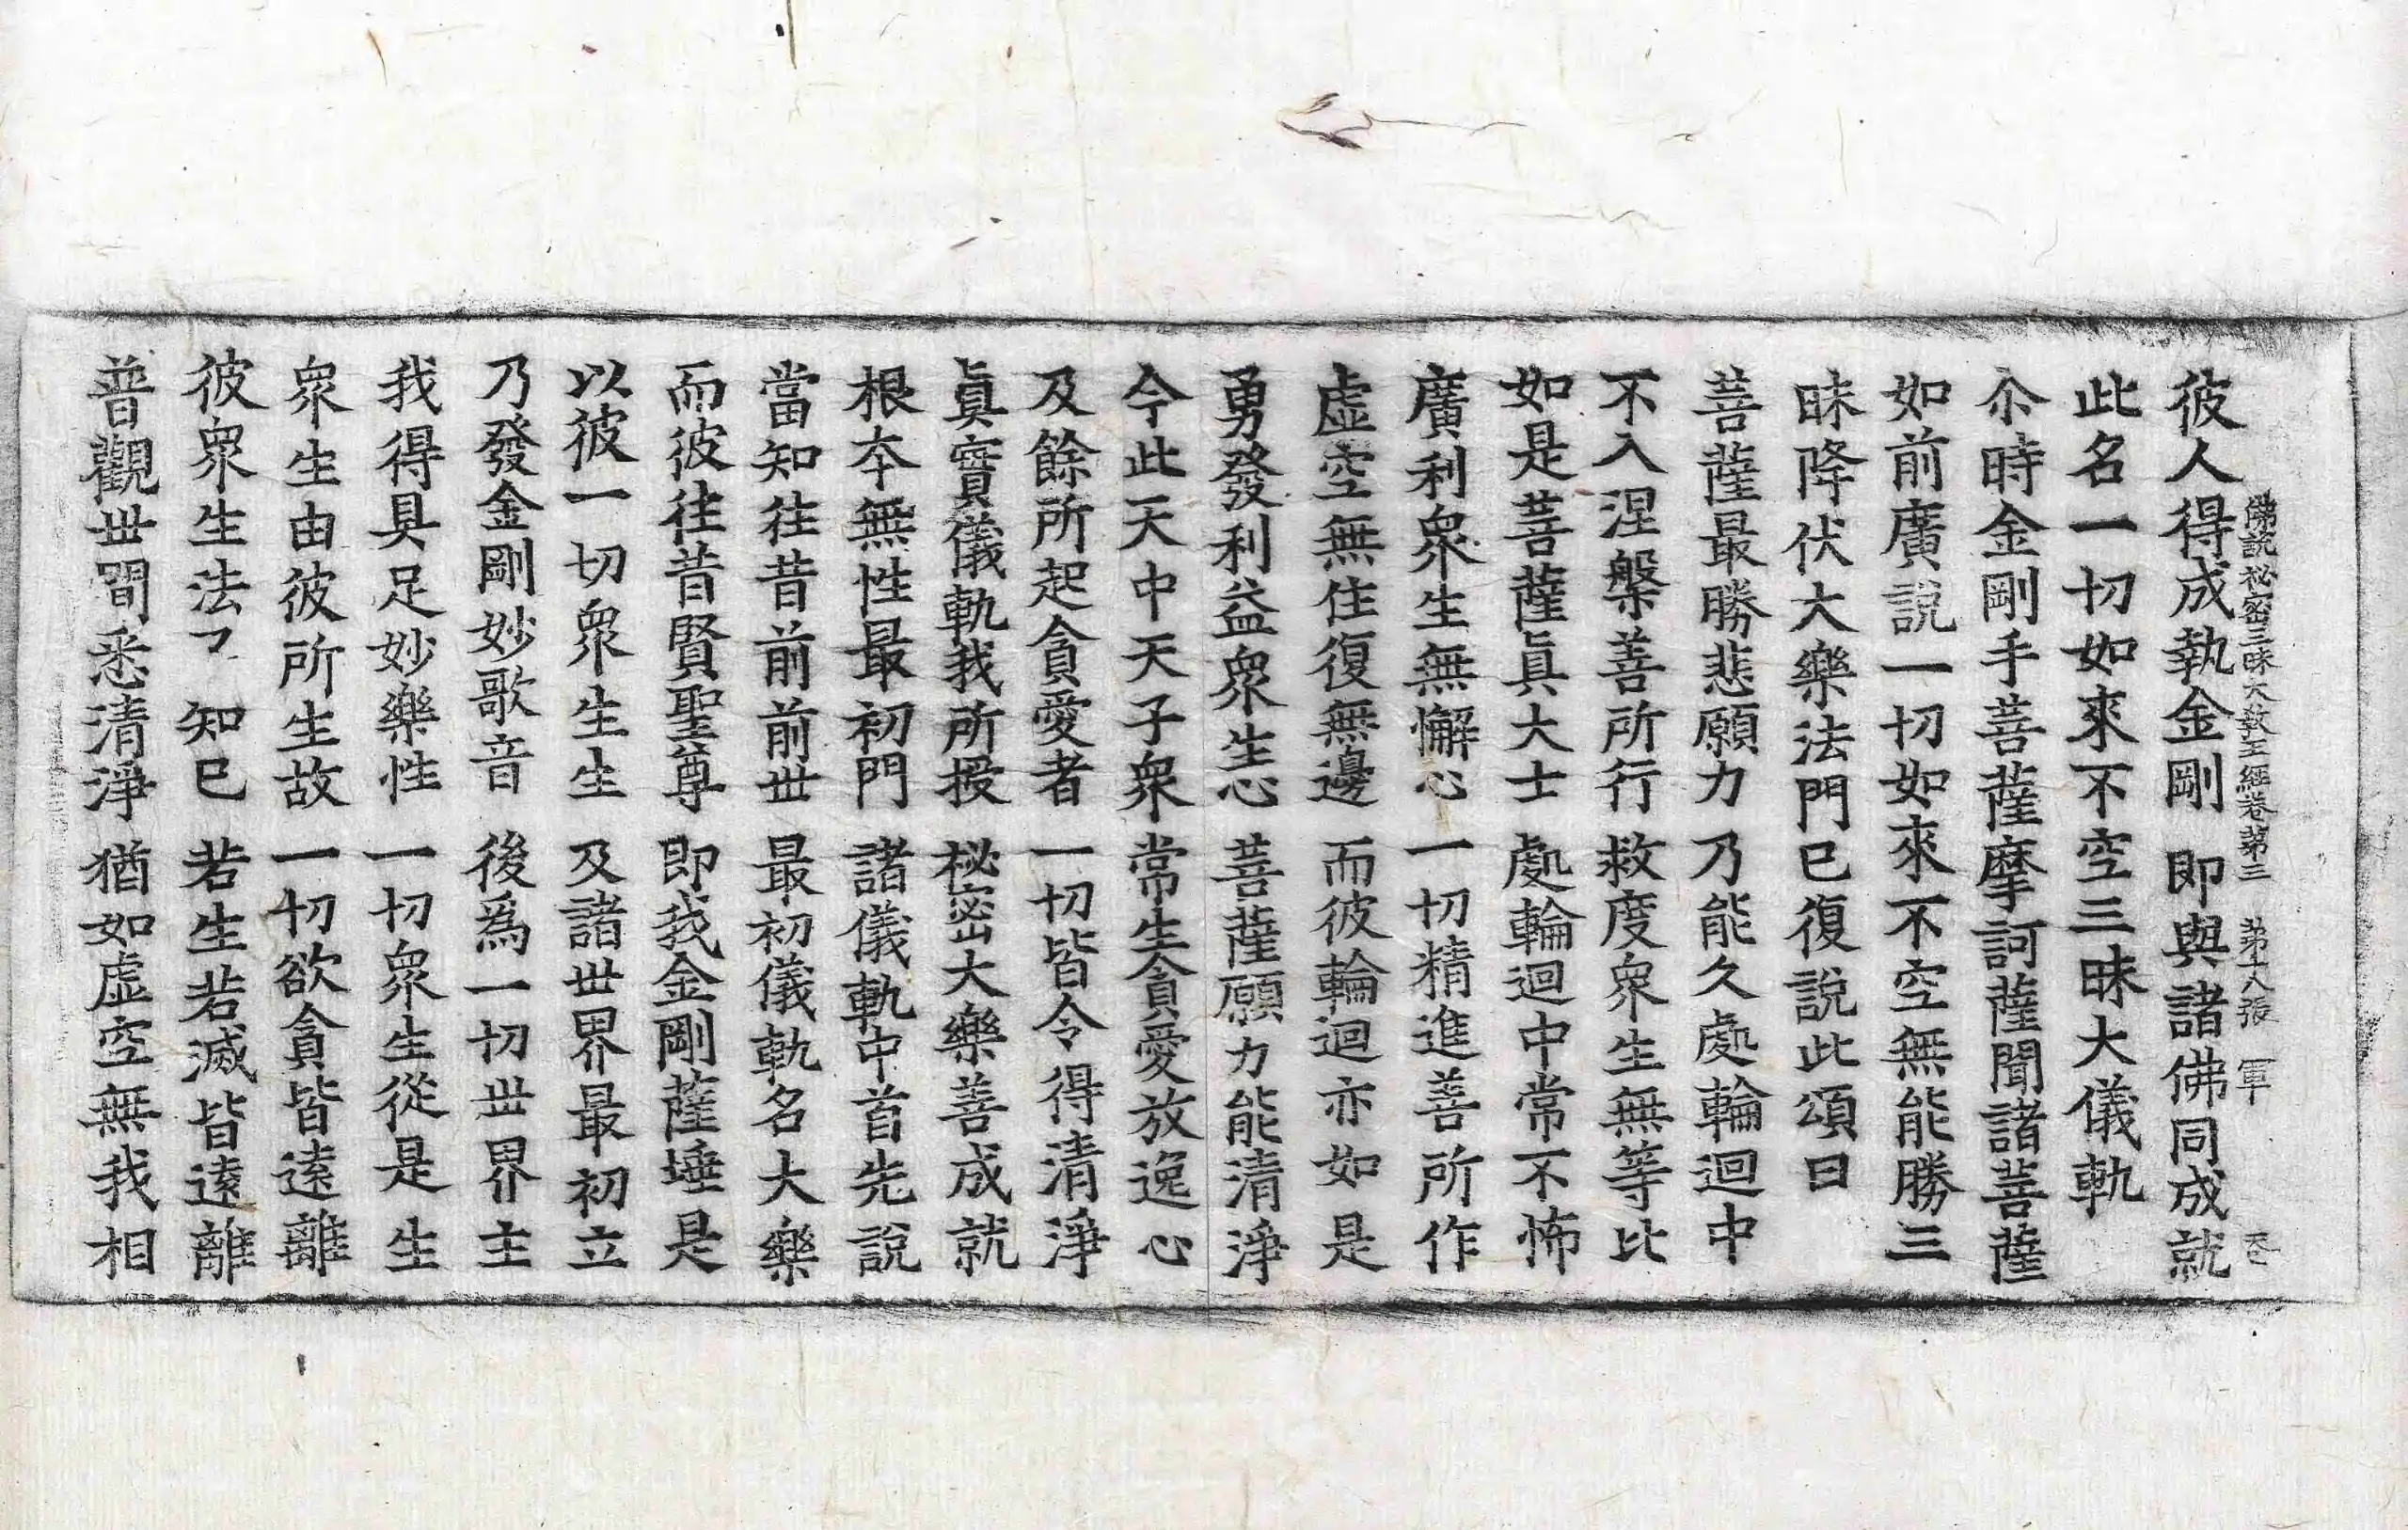 佛說祕密三昧大教王經卷第三 第十八張 軍
彼人得成執金剛 即與諸佛同成就
此名一切如來不空三昧大儀軌
尒時金剛手菩薩摩訶薩聞諸菩薩
如前廣說一切如來不空無能勝三
昧降伏大樂法門已復說此頌曰
菩薩最勝悲願力 乃能久處輪迴中
不入涅槃善所行 救度衆生無等比
如是菩薩眞大士 處輪迴中常不怖
廣利衆生無懈心 一切精進善所作
虛空無住復無邊 而彼輪迴亦如是
勇發利益衆生心 菩薩願力能清淨
今此天中天子衆 常生貪愛放逸心
及餘所起貪愛者 一切皆令得清淨
眞實儀軌我所授 祕密大樂善成就
根本無性最初門 諸儀軌中首先說
當知往昔前前世 最初儀軌名大樂
而彼往昔賢聖尊 即我金剛薩埵是
以彼一切衆生生 及諸世界最初立
乃發金剛妙歌音 後爲一切世界主
我得具足妙樂性 一切衆生從是生
衆生由彼所生故 一切欲貪皆遠離
彼衆生法了知已 若生若滅皆遠離
普觀世間悉清淨 猶如虛空無我相